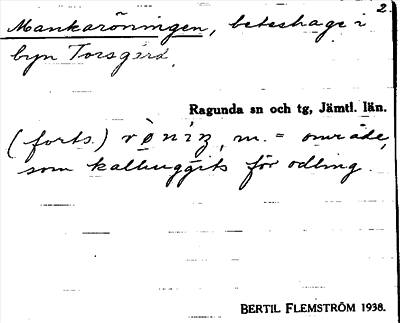 2.
Mankaröningen, beteshage i
byn Torsgård.
Ragunda sn och tg, Jämtl. län.
(forts.) rø̀niŋ, m. = område,
som kalhuggits för odling.
BERTIL FLEMSTRÖM 1938.